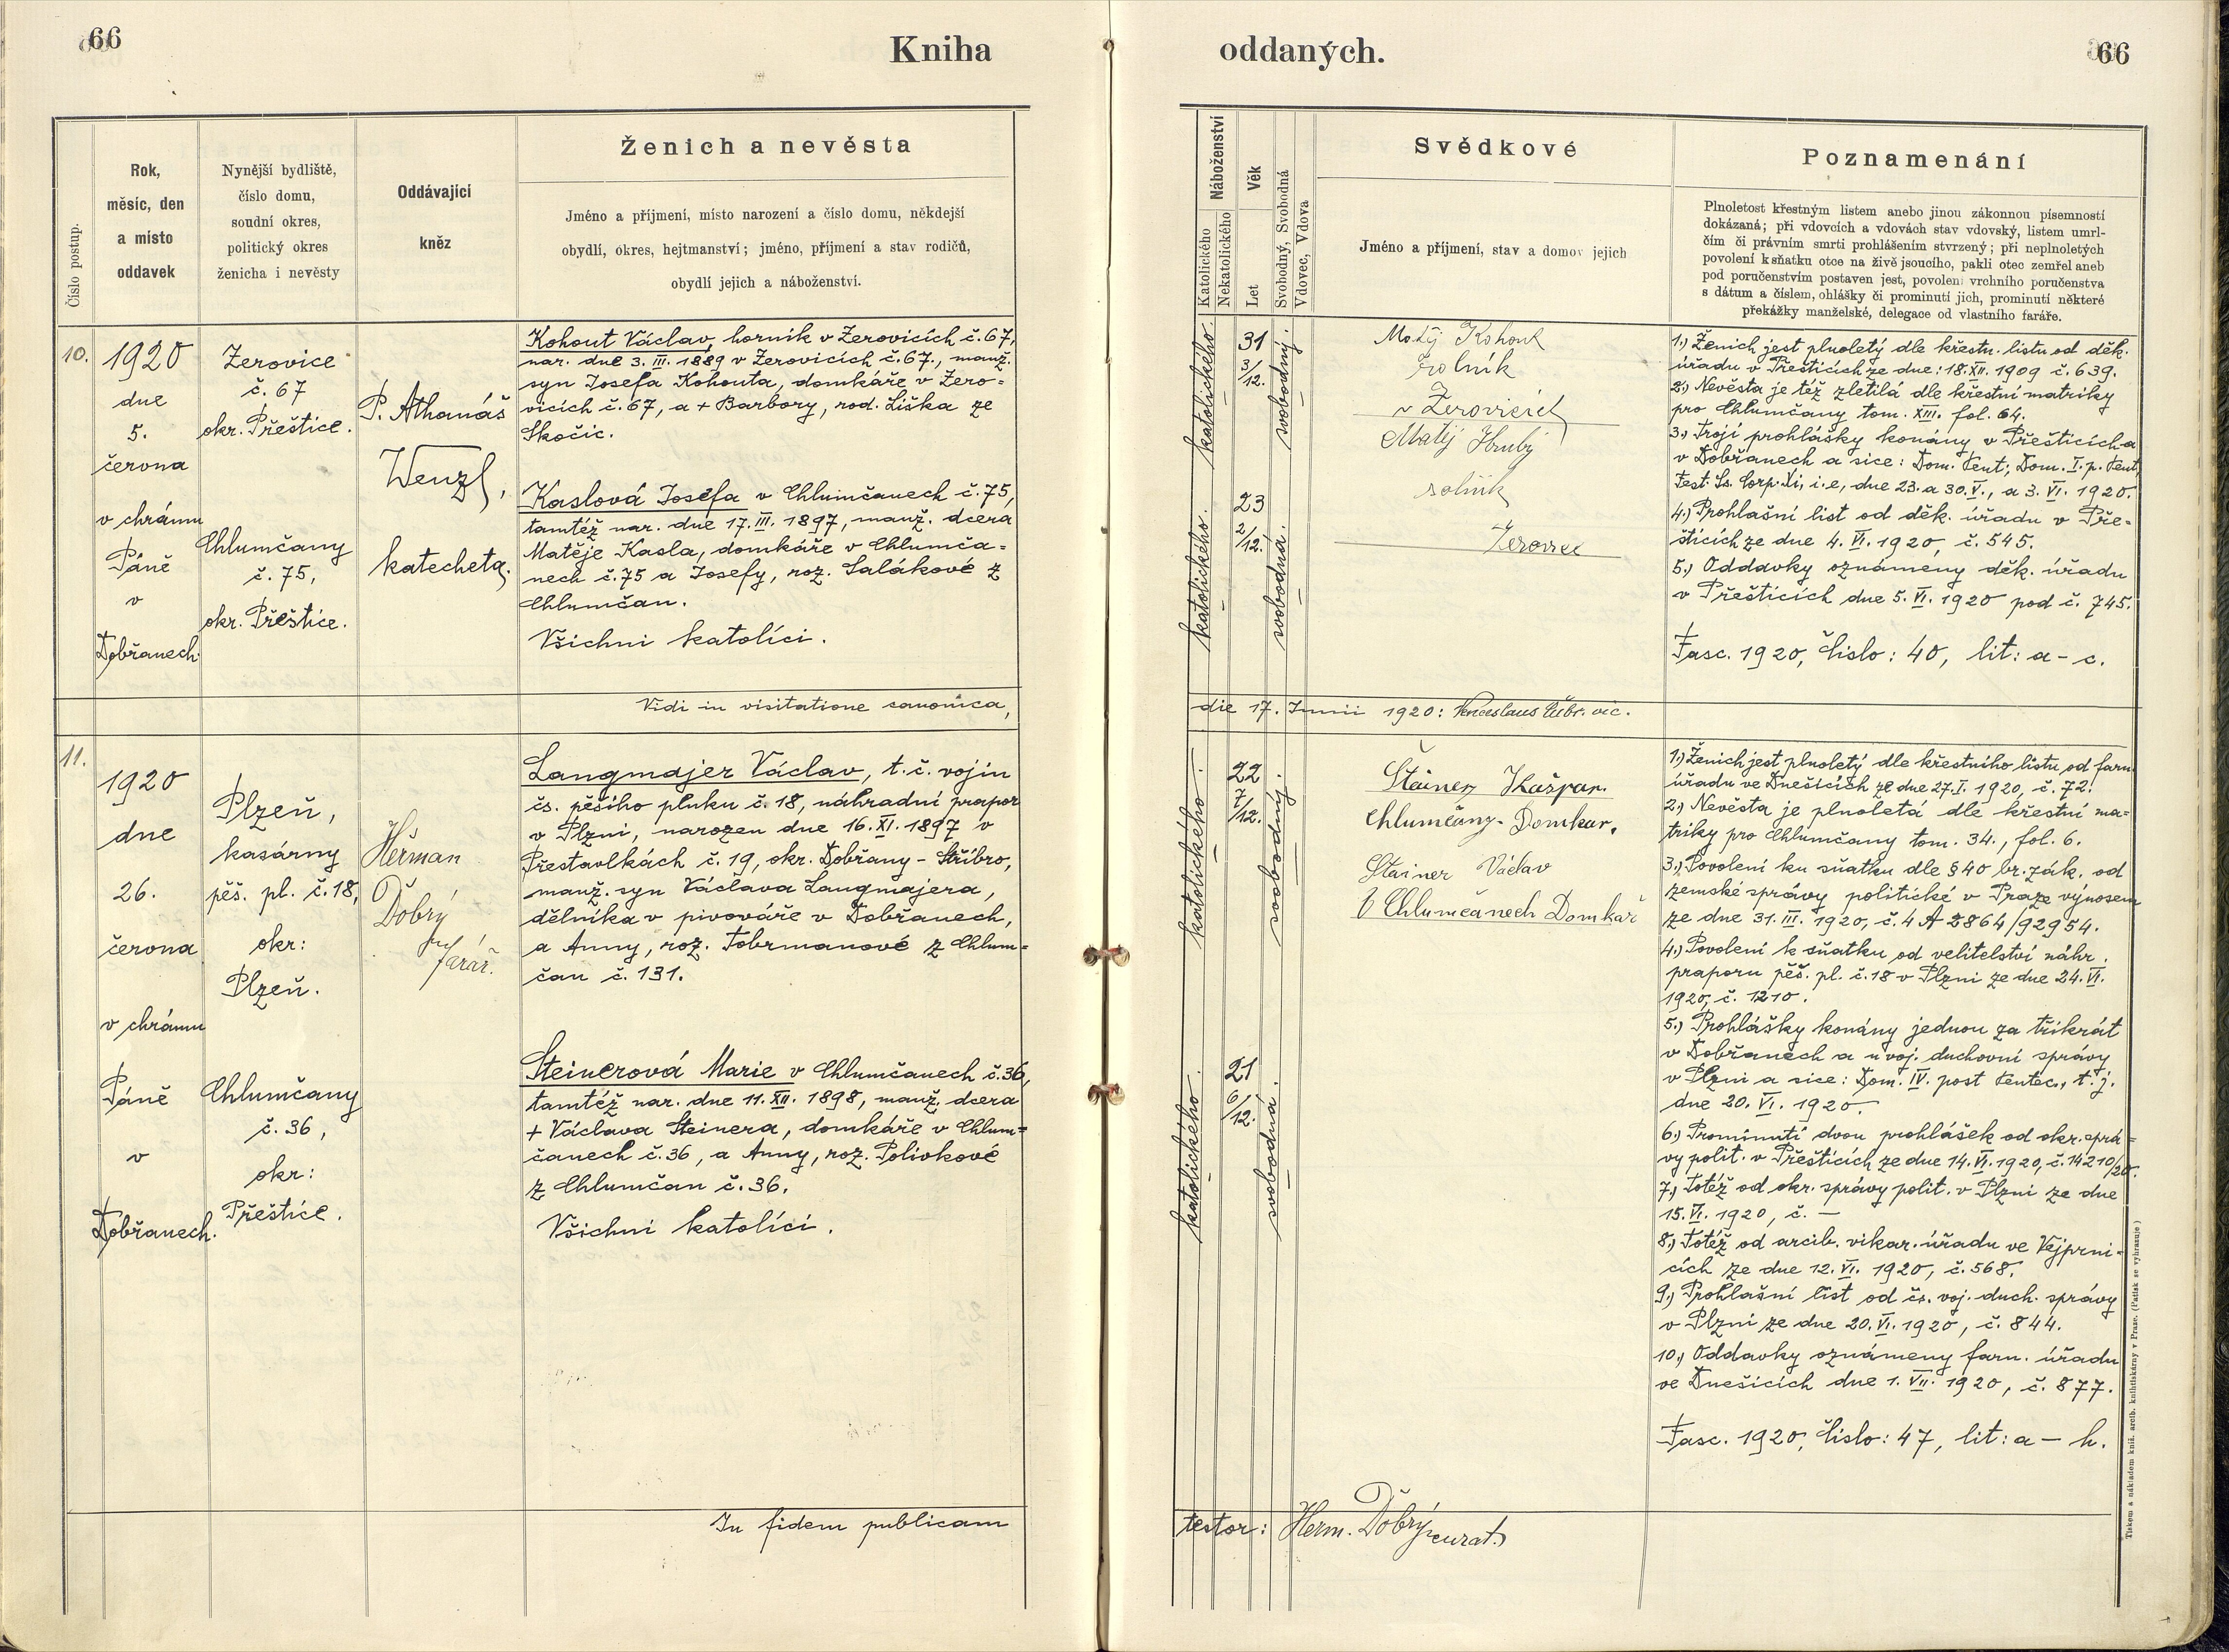 66
Kniha
oddaných.
66
Číslo postup.
Rok,
měsíc, den
a místo
oddavek
Nynější bydliště,
číslo domu,
soudní okres,
politický okres
ženicha i nevěsty
Oddávající
kněz
Ženich a nevěsta
Jméno a příjmení, místo narození a číslo domu, někdejší
obydlí, okres, hejtmanství; jméno, příjmení a stav rodičů,
obydlí jejich a náboženství.
Náboženství
Katolického
Nekatolického
Věk
Let
Svobodný, Svobodná
Vdovec, Vdova
Svědkové
Jméno a příjmení, stav a domov jejich
Poznamenání
Plnoletost křestným listem anebo jinou zákonnou písemností
dokázaná; při vdovcích a vdovách stav vdovský, listem umrl-
čím či právním smrti prohlášením stvrzený; při neplnoletých
povolení k sňatku otce na živě jsoucího, pakli otec zemřel aneb
pod poručenstvím postaven jest, povolení vrchního poručenstva
s dátum a číslem, ohlášky či prominutí jich, prominutí některé
překážky manželské, delegace od vlastního faráře.
10.
1920
dne
5.
června
v chrámu
Páně
v
Dobřanech.
Žerovice
č. 67
okr. Přeštice.
Chlumčany
č. 75,
okr. Přeštice.
P. Athanáš
Wenzl,
katecheta.
Kohout Václav, horník v Žerovicích č. 67,
nar. dne 3. III. 1889 v Žerovicích č. 67., manž.
syn Josefa Kohouta, domkáře v Žero=
vicích č. 67, a + Barbory, rod. Liška ze
Skočic.
Kaslová Josefa v Chlumčanech č. 75,
tamtéž nar. dne 17. III. 1897, manž. dcera
Matěje Kasla, domkáře v Chlumča=
nech č. 75 a Josefy, roz. Salákové z
Chlumčan.
Všichni katolíci.
katolického.
31
3/12.
svobodný.
katolického.
23
2/12.
svobodná.
Matěj Kohout
rolník
v Žerovicích
Matěj Hrubý
rolník
Žerovice
1.) Ženich jest plnoletý dle křestn. listu od děk.
úřadu v Přešticích ze dne: 18. XII. 1909 č. 639.
2.) Nevěsta je též zletilá dle křestní matriky
pro Chlumčany tom. XIII. fol. 64.
3.) Trojí prohlášky konány v Přešticích a
v Dobřanech a sice: Dom. Pent; Dom. I. p. Pent,
Fest. Ss. Corp. Xi, i. e, dne 23. a 30. V., a 3. VI. 1920.
4.) Prohlašní list od děk. úřadu v Pře-
šticích ze dne 4. VI. 1920, č. 545.
5.) Oddavky oznámeny děk. úřadu
v Přešticích dne 5. VI. 1920 pod č. 745.
Fasc. 1920, číslo: 40, lit: a - c.
Vidi in visitatione canonica,
die 17. Junii 1920:
vic.
11.
1920
dne
26.
června
v chrámu
Páně
v
Dobřanech.
Plzeň,
kasárny
pěš. pl. č. 18,
okr:
Plzeň.
Chlumčany
č. 36,
okr:
Přeštice.
Heřman
Dobrý
farář.
Langmajer Václav, t. č. vojín
čs. pěšího pluku č. 18, náhradní prapor
v Plzni, narozen dne 16. XI. 1897 v
Přestavlkách č. 19, okr. Dobřany - Stříbro,
manž. syn Václava Langmajera,
dělníka v pivováře v Dobřanech,
a Anny, roz. Tobrmanové z Chlum=
čan č. 131.
Steinerová Marie v Chlumčanech č. 36,
tamtéž nar. dne 11. XII. 1898, manž. dcera
+ Václava Steinera, domkáře v Chlum=
čanech č. 36, a Anny, roz. Polívkové
z Chlumčan č. 36.
Všichni katolíci.
katolického.
22
7/12.
svobodný.
katolického.
21
6/12.
svobodná.
Stainer Kašpar.
Chlumčany. Domkar.
Stainer Václav
v Chlumčanech Domkař
1.) Ženich jest plnoletý dle křestního listu od farn.
úřadu ve Dnešicích ze dne 27. I. 1920, č. 72.
2.) Nevěsta je plnoletá dle křestní ma-
triky pro Chlumčany tom. 34., fol. 6.
3.) Povolení ku sňatku dle § 40 br. zák. od
zemské správy politické v Praze výnosem
ze dne 31. III. 1920, č. 4 A 2864/92954.
4.) Povolení k sňatku od velitelství náhr.
praporu pěš. pl. č. 18 v Plzni ze dne 24. VI.
1920, č. 1210.
5.) Prohlášky konány jednou za třikrát
v Dobřanech a u voj. duchovní správy
v Plzni a sice: Dom. IV. post Pentec., t. j.
dne 20. VI. 1920.
6.) Prominutí dvou prohlášek od okr. sprá=
vy polit. v Přešticích ze dne 14. VI. 1920, č. 14210/20.
7.) Totéž od okr. správy polit. v Plzni ze dne
15. VI. 1920, č. —
8.) Totéž od arcib. vikar. úřadu ve Vejprni-
cích ze dne 12. VI. 1920, č. 568.
9.) Prohlašní list od čs. voj. duch. správy
v Plzni ze dne 20. VI. 1920, č. 844.
10.) Oddavky oznámeny farn. úřadu
ve Dnešicích dne 1. VII. 1920, č. 877.
Fasc. 1920, číslo: 47, lit: a - h.
In fidem publicam
testor: Herm. Dobrý, curat.
Tiskem a nákladem kníž. arcib. knihtiskárny v Praze. (Patisk se vyhrazuje)